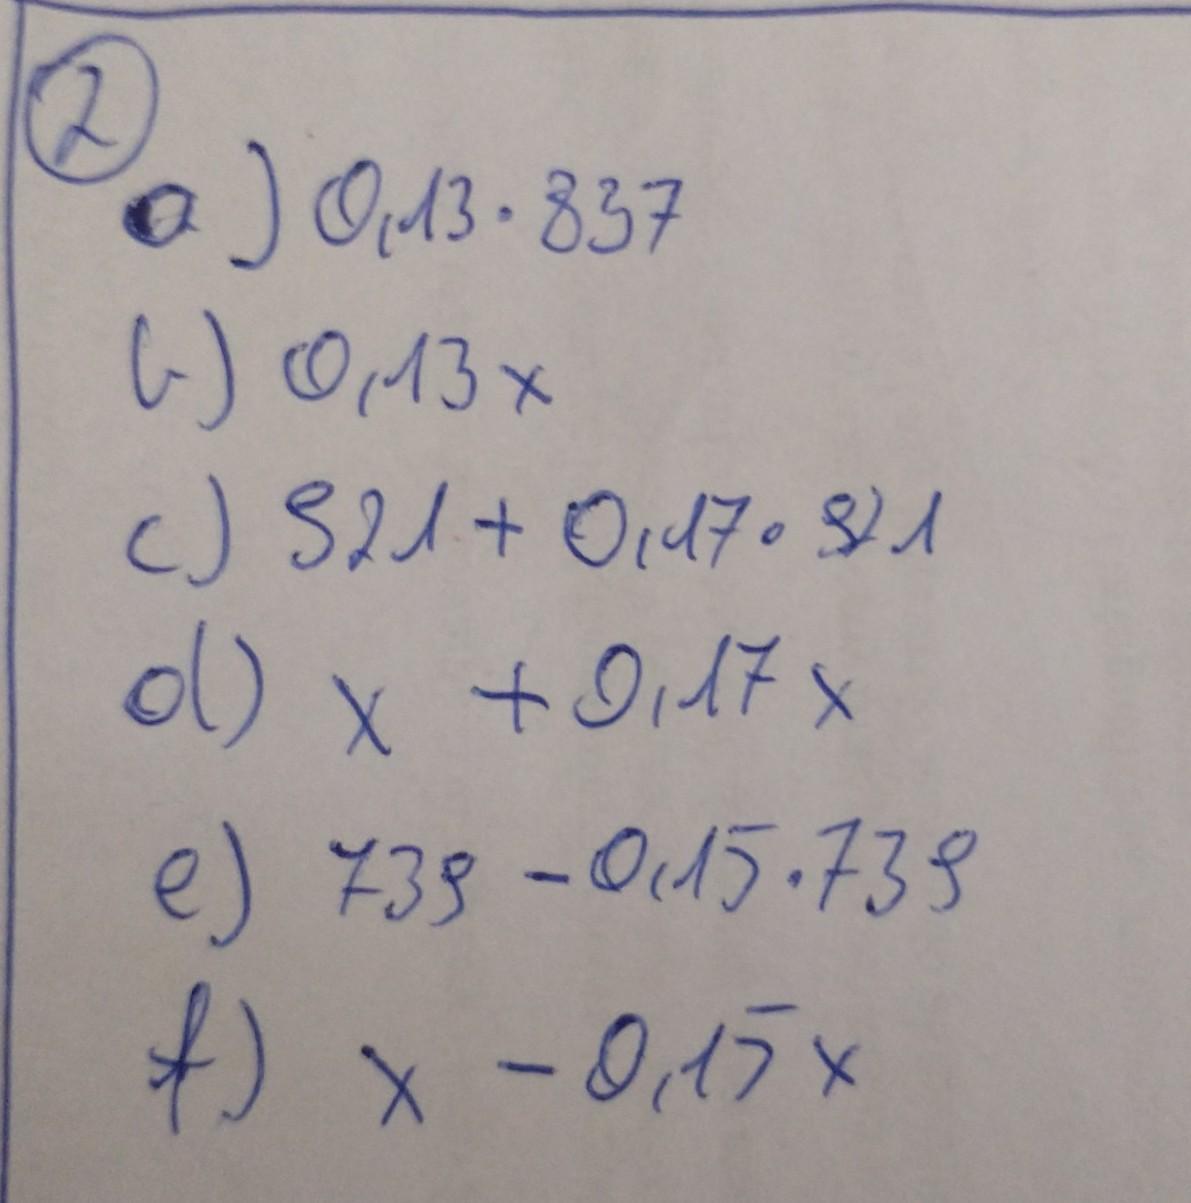 2
a) 0,13·837
b) 0,13x
c) 921 + 0,17·921
d) x + 0,17x
e) 739 - 0,15·739
f) x - 0,15x